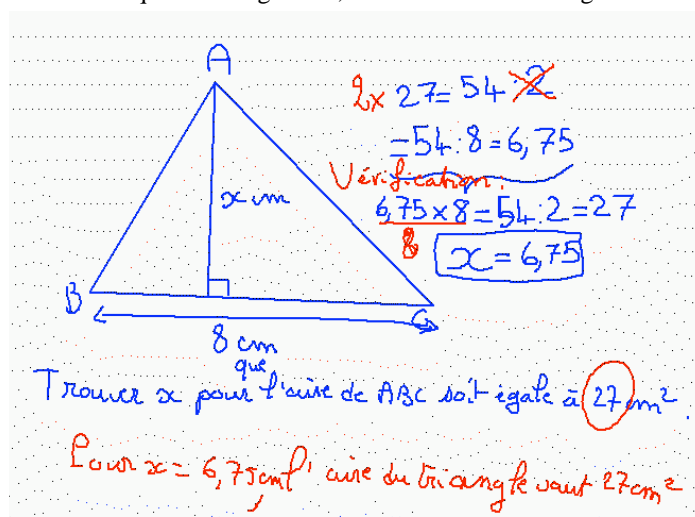 A
2x 27 = 54 : 2
= 54 : 8 = 6,75
x cm
Vérification :
6,75 x 8 = 54 : 2 = 27
8
x = 6,75
B
C
8 cm
que
Trouver x pour l'aire de ABC soit égale à 27 cm².
Pour x = 6,75 cm, l'aire du triangle vaut 27 cm²